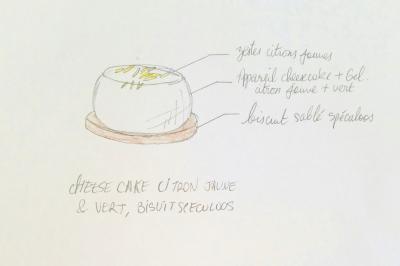 zestes citrons jaunes
Appareil cheesecake + Gel.
citron jaune + vert
biscuit sablé spéculoos
CHEESE CAKE CITRON JAUNE
& VERT, BISUITSCECULOOS